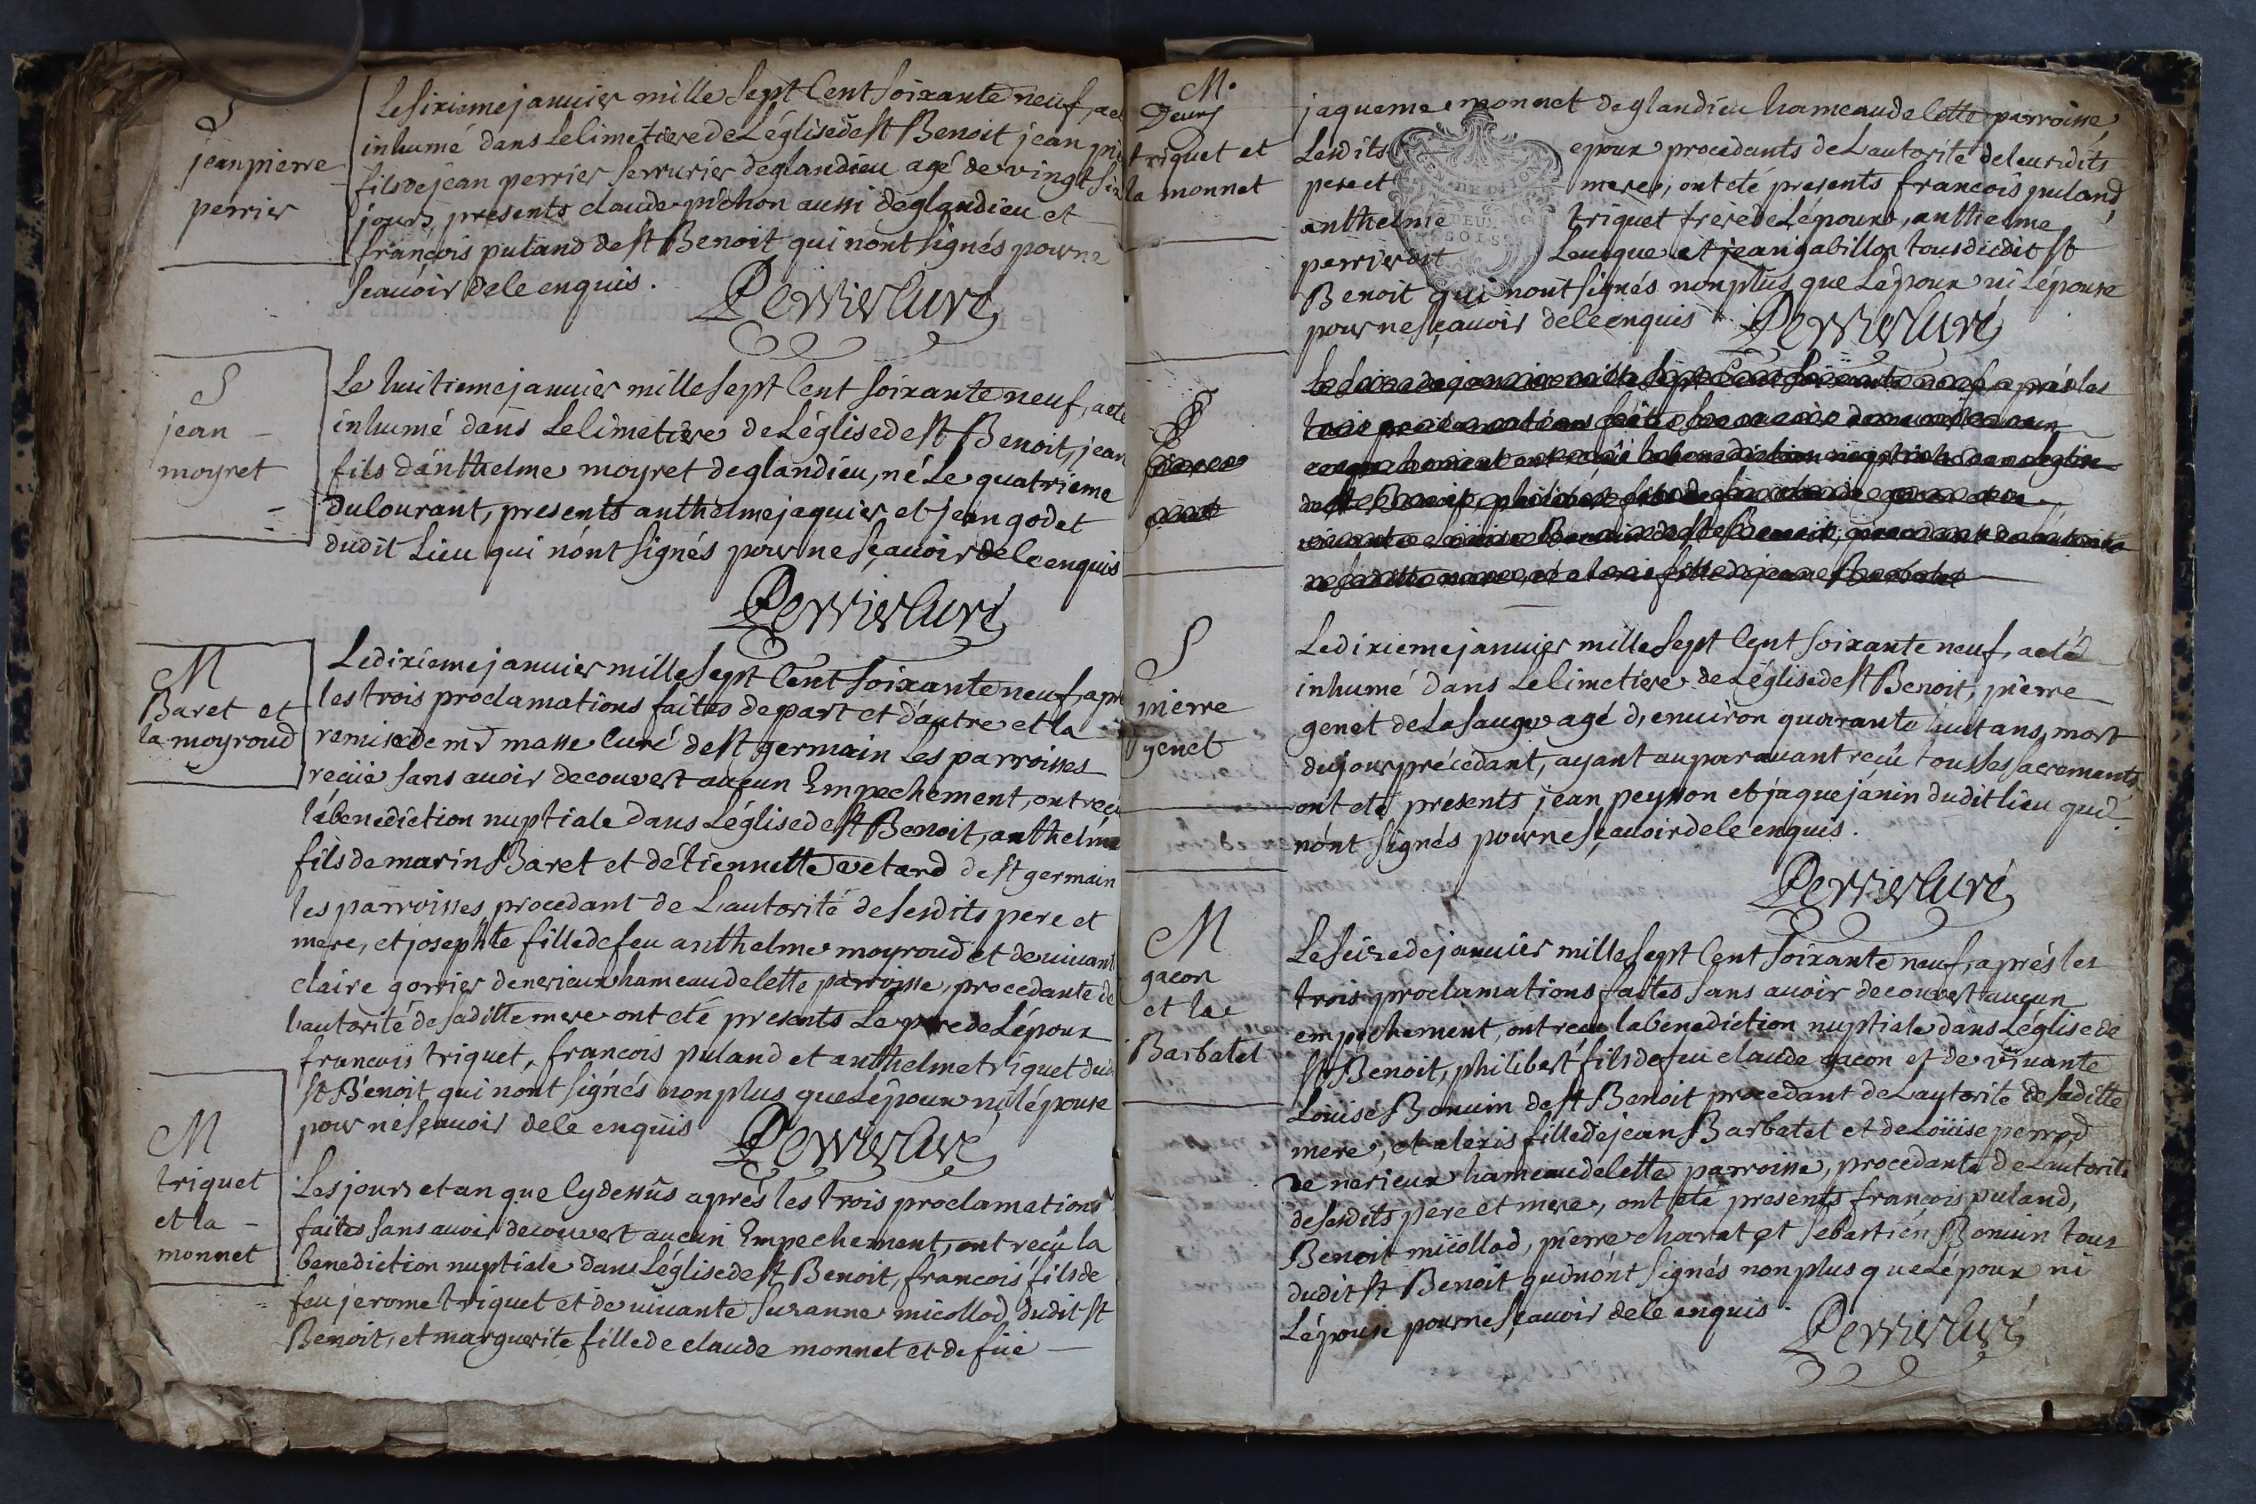 S
jean pierre
perrier
Le sixieme janvier mille sept Cent soixante neuf, a eté
inhumé dans Le Cimetiere de L'église de st Benoit jean
fils de jean perrier serrurier de glandieu agé de vingt six
jours, presents claude pichon aussi de glandieu et
françois puland de st Benoit qui n'ont signés pour ne
sçauoir de le enquis.
Perrier Curé
S
jean -
moyret
Le huitieme janvier mille sept Cent soixante neuf, a eté
inhumé dans Le Cimetiere de L'église de st Benoit, jean
fils d'anthelme moyret de glandieu, né Le quatrieme
du Courant, presents anthelme jaquier et jean godet
dudit Lieu qui n'ont signés pour ne sçauoir de le enquis
Perrier Curé
M
Baret et
la moyroud
Le dixieme janvier mille sept Cent soixante neuf, apr
les trois proclamations faites de part et d'autre et la
remise de mr masse Curé de st germain Les parroisses
reçüe sans auoir decouvert aucun Empechement, ont reçu
la benediction nuptiale dans L'église de st Benoit, anthelme
fils de marin Baret et d'étiennette vetard de st germain
les parroisses procedant de L'autorité de sesdits pere et
mere, et josephte fille de feu anthelme moyroud et de uiuant
claire gorrier de nerieux hameau de Cette parroisse, procedante de
l'autorité de sa ditte mere ont eté presents Le pere de L'époux
francois triquet, francois puland et anthelme triquet dud
st Benoit qui n'ont signés non plus que L'époux ni l'épouse
pour ne sçauoir de le enquis
Perrier Curé
M
triquet
et la -
monnet
Les jour et an que Cy dessus aprés les trois proclamations
faites sans auoir decouvert aucun Empechement, ont reçu la
benediction nuptiale dans L'église de st Benoit, francois fils de
feu jerome triquet et de uiuante suzanne micollod dudit st
Benoit, et marguerite fille de claude monnet et de füe
M.
Deux
triquet et
la monnet
jaqueme monnet de glandieu hameau de Cette parroisse,
Lesdits epoux procedants de L'autorité de leursdits
pere et mere, ont eté presents francois puland,
anthelme triquet frere de L'époux, anthelme
perrier dit Leveque et jean gabillon tous dudit st
Benoit qui n'ont signés non plus que L'époux ni L'épouse
pour ne sçauoir de le enquis
Perrier Curé
GEN. DE DIJON
DEUX
SOLS
Le seize de janvier mille sept Cent soixante neuf aprés les
S
pierre
genet
Le dixieme janvier mille sept Cent soixante neuf, a eté
inhumé dans Le Cimetiere de L'église de st Benoit, pierre
genet de La sauge agé d'enuiron quarante huit ans, mort
du jour précédant, ayant auparauant reçu tous les sacrements
ont eté presents jean peysson et jaque janin dudit lieu qui
n'ont signés pour ne sçauoir de le enquis.
Perrier Curé
M
gacon
et la
Barbatet
Le seize de janvier mille sept Cent soixante neuf, aprés les
trois proclamations faites sans auoir decouvert aucun
empechement, ont reçu la benediction nuptiale dans L'église de
st Benoit, philibert fils de feu claude gacon et de viuante
Louise Bonuin de st Benoit procedant de L'autorité de sa ditte
mere, et alexis fille de jean Barbatet et de Loüise perrod
de nerieux hameau de Cette parroisse, procedante de L'autorité
de sesdits pere et mere, ont eté presents françois puland,
Benoit micollod, pierre charat et sebastien Bonuin tous
dudit st Benoit qui n'ont signés non plus que L'époux ni
L'épouse pour ne sçauoir de le enquis.
Perrier Curé